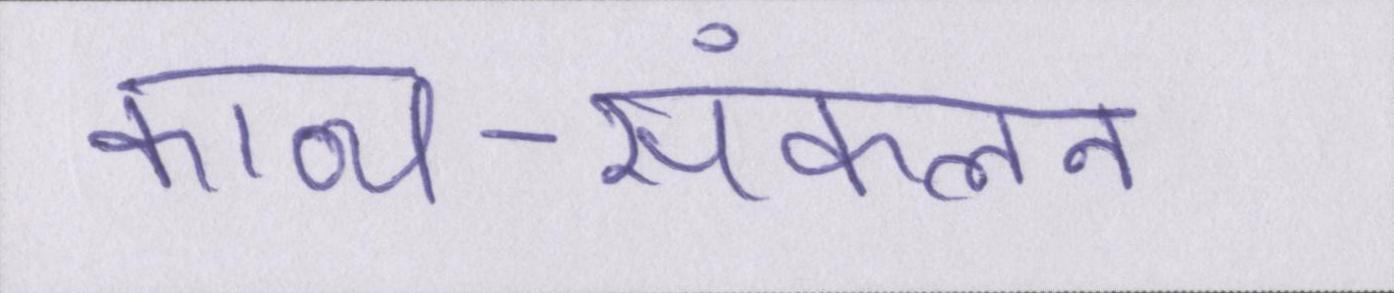 काव्य-संकलन